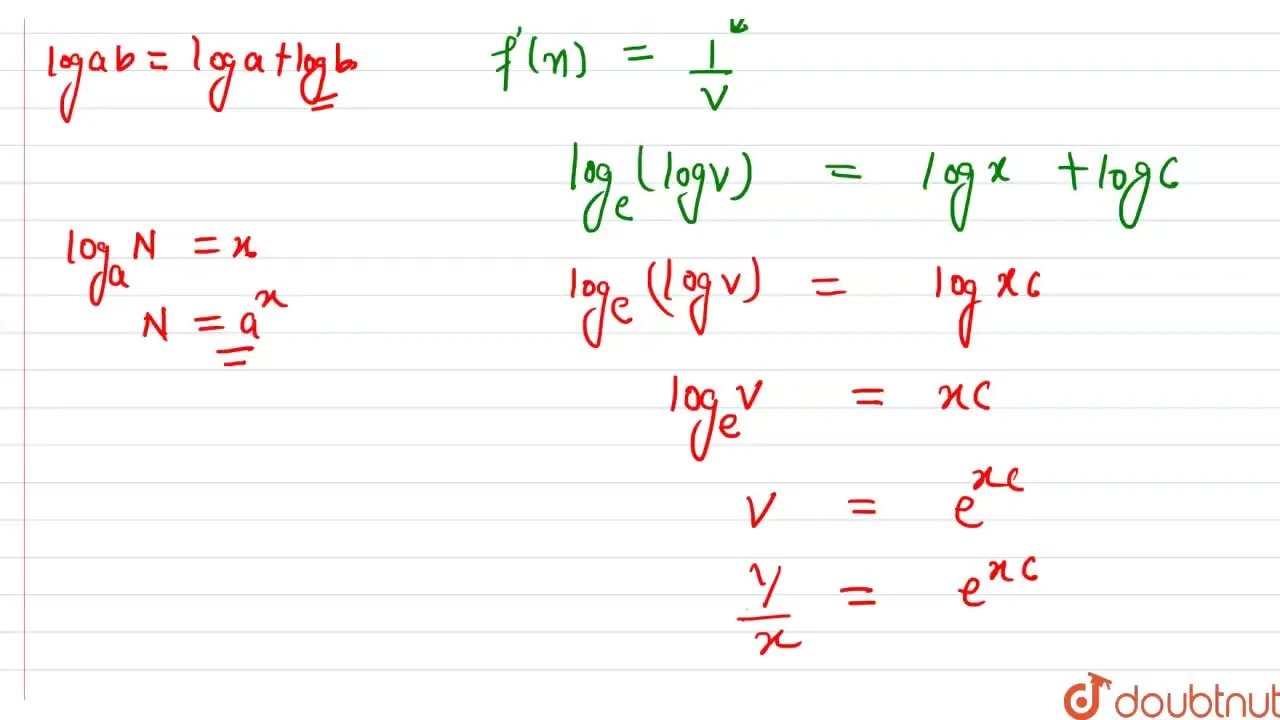 log ab = log a + log b
log_a N = x
N = a^x
f'(x) = 1/v
log_e (log v) = log x + log c
log_e (log v) = log xc
log_e v = xc
v = e^xc
y/x = e^xc
doubtnut